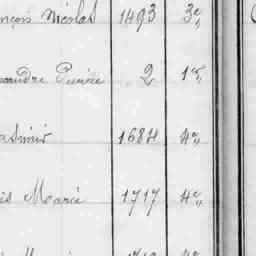 nçois Nicolas 1493 3e „
andre Pierre 2 1er „
asimir 1684 4e „
is Marie 1717 4e „